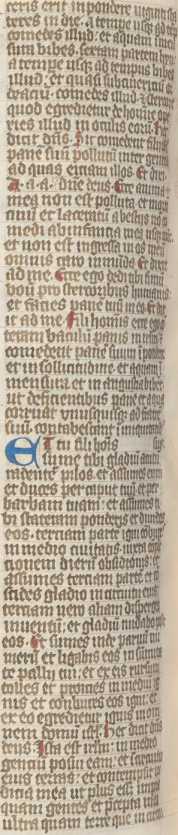 teris erit in pondere viginti sta
teres in die. a tempe usq; ad tēp
comedes illud. et aquam in mēsu
ra bibes. sextam partem hyn
a tempe usq; ad tempus bibes
illud. et quasi subcinericiū or
deaciū comedes illud. et stercore
quod egredietur de hoīe ope
ries illud in oculis eorū. Hec
dicit dn̄s. Sic comedent filii isr̄l
pane suū pollutū inter gentes
ad quas eiciam illos. Et dixi.
A. a. a. dn̄e deus. Ecce anima
mea non est polluta. et morti
cinū et laceratū a bestiis nō co
medi ab infantia mea usq; nūc
et non est ingressa in os meū
omnis caro inmūda. Et dixit
ad me. Ecce ego dedi tibi fimū
boū pro stercoribus humanis.
et facies pane tuū in eo. Et dix
it ad me. Fili hominis ecce ego cō
teram baculū panis in irl̄m.
comedent pane suum ī pondere
et in sollicitudine. et aquam ī
mensura et in angustia bibēt.
ut deficientibus pane et aqua
corruat unusquisq; ad fratrē
suū. contabescant ī iniquitatib;
Et tu fili hōis
sume tibi gladiū acutū
radente pilos. et assumes eum
et duces per caput tuū et per
barbam tuam. et assumes ti
bi stateram ponderis et divides
eos. terciam parte igni cōbures
in medio civitatis. iuxta cōple
tionem dierū obsidionis. et
assumes terciam parte et cō
cides gladio in circuitu eius.
terciam vero aliam disperges
in ventū. et gladiū nudabo post
eos. Et sumes inde parvū nu
merū et ligabis eos in sūmita
te pallii tui. et ex eis rursum
tolles et proicies in medio ig
nis et cōbures eos igni. et
ex eo egredietur ignis in om
nem domū isr̄l. Hec dicit dn̄s
deus. Ista est irl̄m. in medio
gentiū posui eam. et ī circuitu
eius terras. et contempsit iu
dicia mea ut plus esset impia
quam gentes. et p̄cepta mea
ultra quam terre que in circu